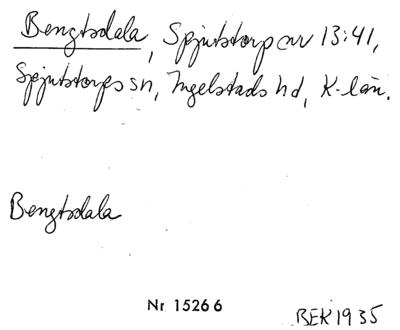 Bengtsdala, Spjutstorp av 13:41,
Spjutstorps sn, Ingelstads hd, K-län.
Bengtsdala
Nr 15266
BEK 1935